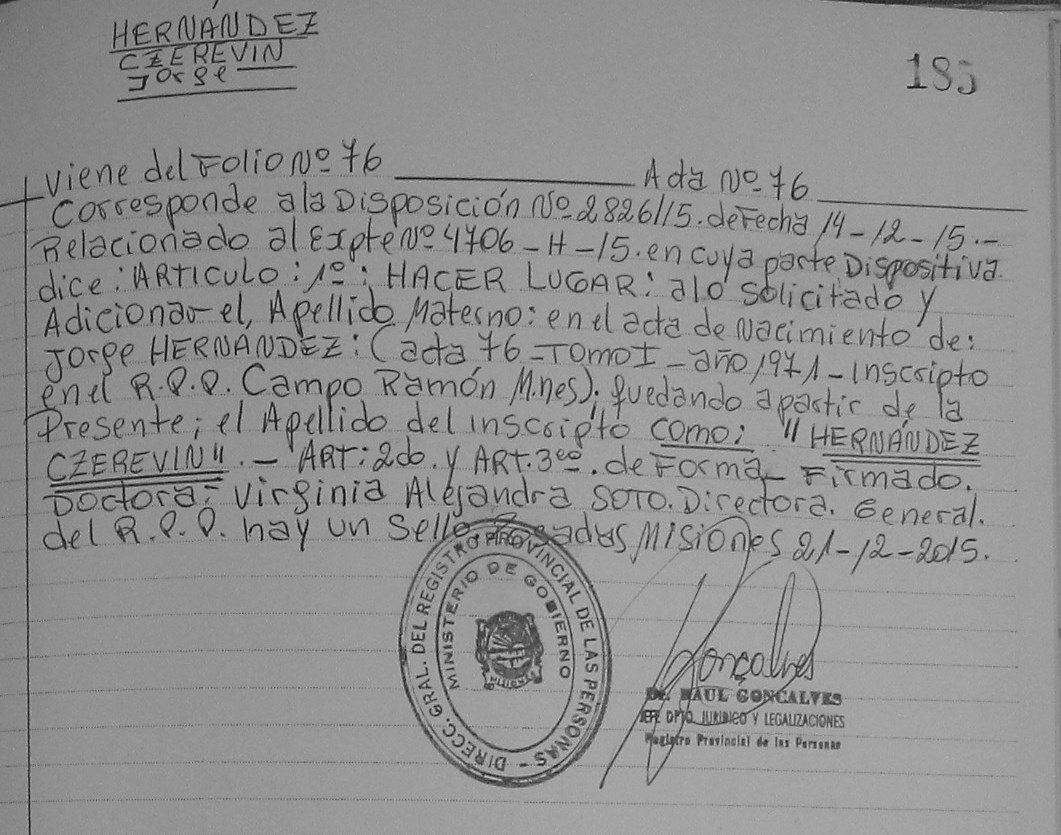 HERNÁNDEZ
CZEREVIN
Jorge
185
Viene del Folio Nº 76 Acta Nº 76
Corresponde a la Disposición Nº 2826/15. de Fecha 14-12-15.-
Relacionado al Expte Nº 4706-H-15. en cuya parte Dispositiva.
dice: ARTICULO: 1º: HACER LUGAR: a lo solicitado y
Adicionar el, Apellido Materno: en el acta de Nacimiento de:
Jorge HERNANDEZ: (acta 76-TOMO I-año 1971-Inscripto
en el R.P.P. Campo Ramón M.nes); quedando a partir de la
Presente; el Apellido del inscripto como: "HERNÁNDEZ
CZEREVIN".- ART: 2do. y ART. 3ero. de Forma- Firmado.
Doctora: Virginia Alejandra SOTO. Directora. General.
del R.P.P. hay un Sello Posadas Misiones 21-12-2015.
DIRECC. GRAL. DEL REGISTRO PROVINCIAL DE LAS PERSONAS
MINISTERIO DE GOBIERNO
MISIONES
Gonçalves
Dr. RAUL GONCALVES
JEFE DPTO. JURIDICO Y LEGALIZACIONES
Registro Provincial de las Personas